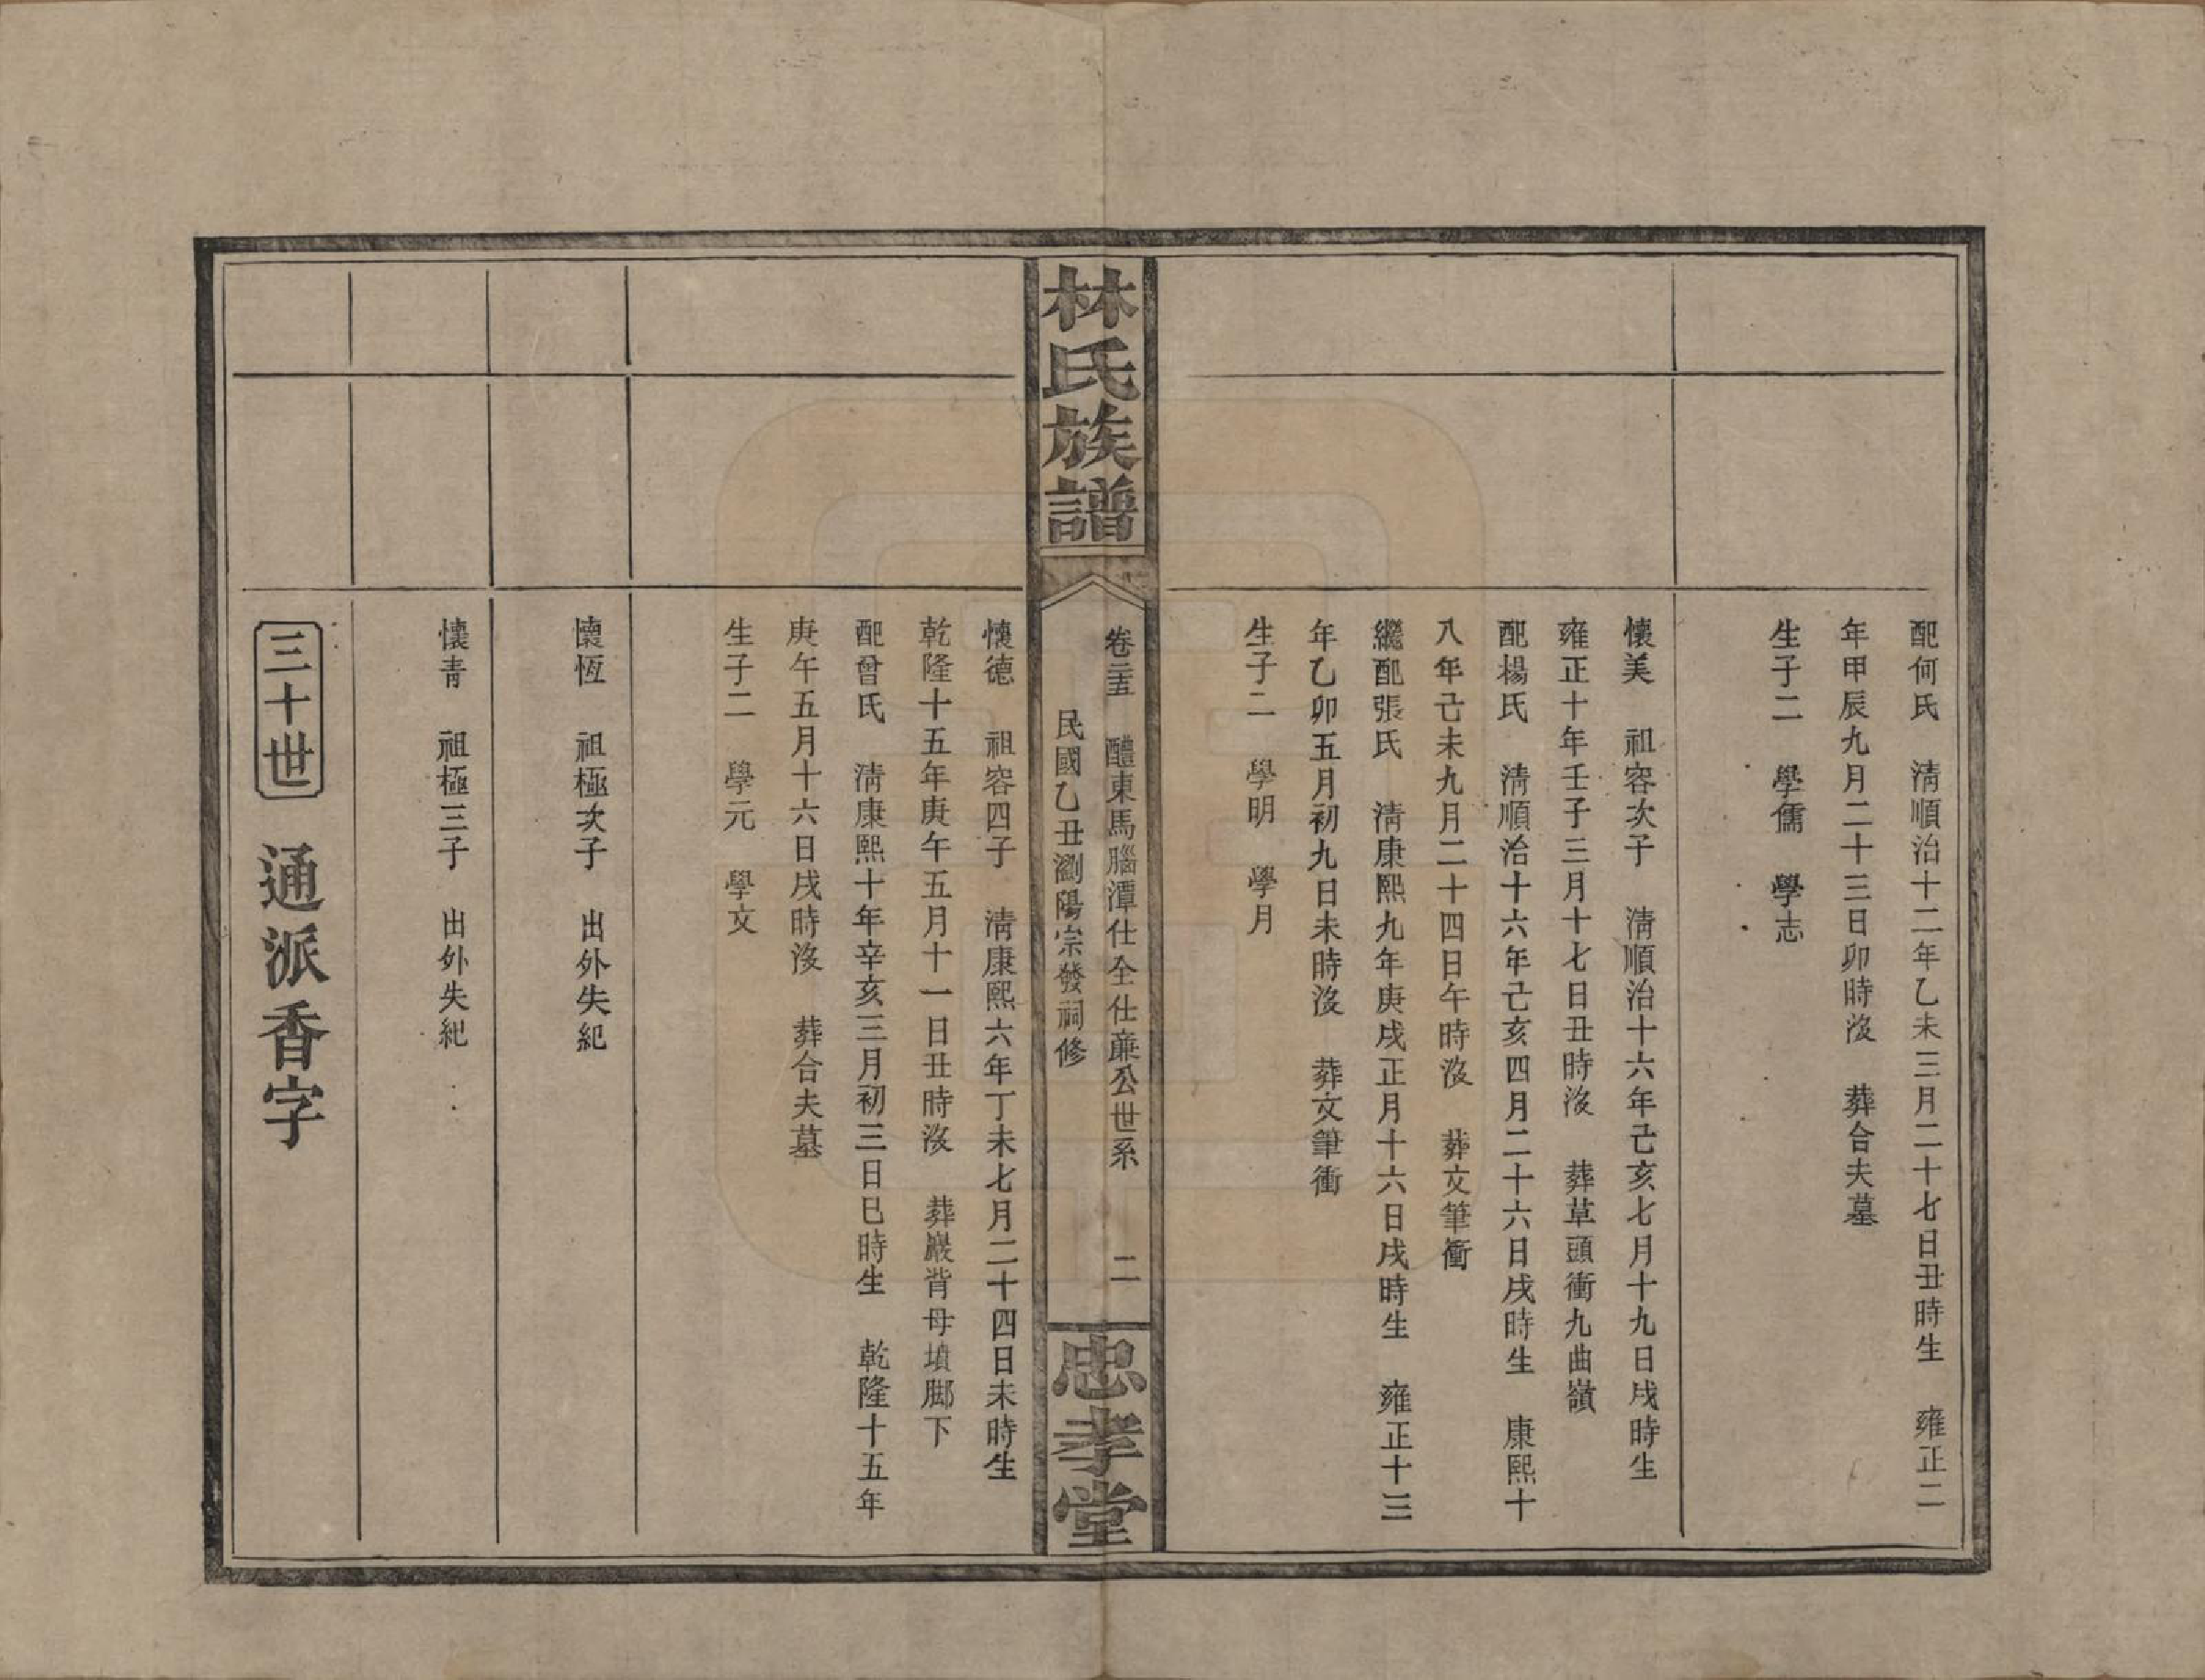 配何氏　清順治十二年乙未三月二十七日丑時生　雍正二
年甲辰九月二十三日卯時沒　葬合夫墓
生子二　學儒　學志
懷美　祖容次子　清順治十六年己亥七月十九日戌時生
雍正十年壬子三月十七日丑時沒　葬草頭衝九曲嶺
配楊氏　清順治十六年己亥四月二十六日戌時生　康熙十
八年己未九月二十四日午時沒　葬文筆衝
繼配張氏　清康熙九年庚戌正月十六日戌時生　雍正十三
年乙卯五月初九日未時沒　葬文筆衝
生子二　學明　學月
林氏族譜
卷二十五　醴東馬腦潭仕全仕廉公世系　二
民國乙丑瀏陽宗發祠修
忠孝堂
懷德　祖容四子　清康熙六年丁未七月二十四日未時生
乾隆十五年庚午五月十一日丑時沒　葬巖背母墳脚下
配曾氏　清康熙十年辛亥三月初三日巳時生　乾隆十五年
庚午五月十六日戌時沒　葬合夫墓
生子二　學元　學文
懷恆　祖極次子　出外失紀
懷青　祖極三子　出外失紀
三十世　通派香字